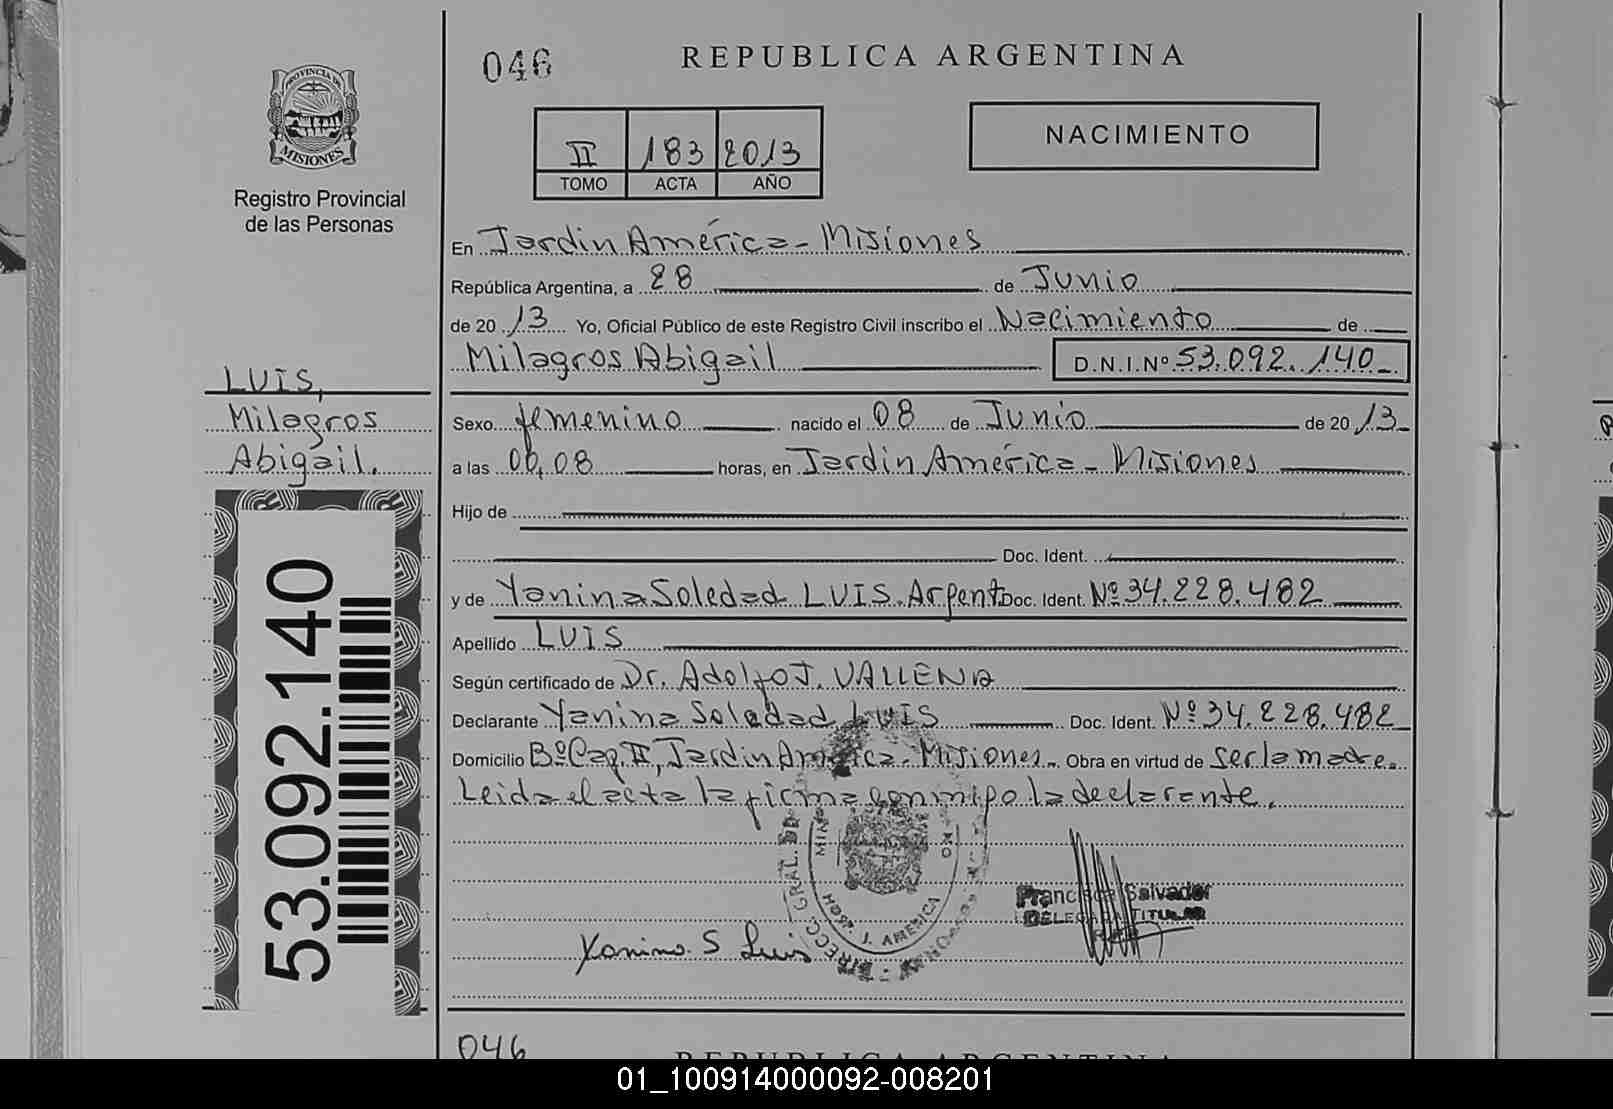 046
REPUBLICA ARGENTINA
II 183 2013
TOMO ACTA AÑO
NACIMIENTO
PROVINCIA DE
MISIONES
Registro Provincial
de las Personas
En Jardin América - Misiones
República Argentina, a 28 de Junio
de 20 13 Yo, Oficial Público de este Registro Civil inscribo el Nacimiento de
Milagros Abigail D.N.I.Nº 53.092.140
LUIS,
Milagros
Abigail.
53.092.140
Sexo femenino nacido el 08 de Junio de 20 13
a las 00,08 horas, en Jardin América - Misiones
Hijo de
Doc. Ident.
y de Yanina Soledad LUIS. Argent. Doc. Ident. Nº 34.228.482
Apellido LUIS
Según certificado de Dr. Adolfo J. VALLENA
Declarante Yanina Soledad LUIS Doc. Ident. Nº 34.228.482
Domicilio Bº Cap. II, Jardin América - Misiones. Obra en virtud de ser la madre.
Leida el acta la firma conmigo la declarante.
DIRECC. GRAL. DE
HOSP. J. AMERICA
Francisca Salvador
DELEGADA TITULAR
Yanina S Luis
046
REPUBLICA ARGENTINA
01_100914000092-008201